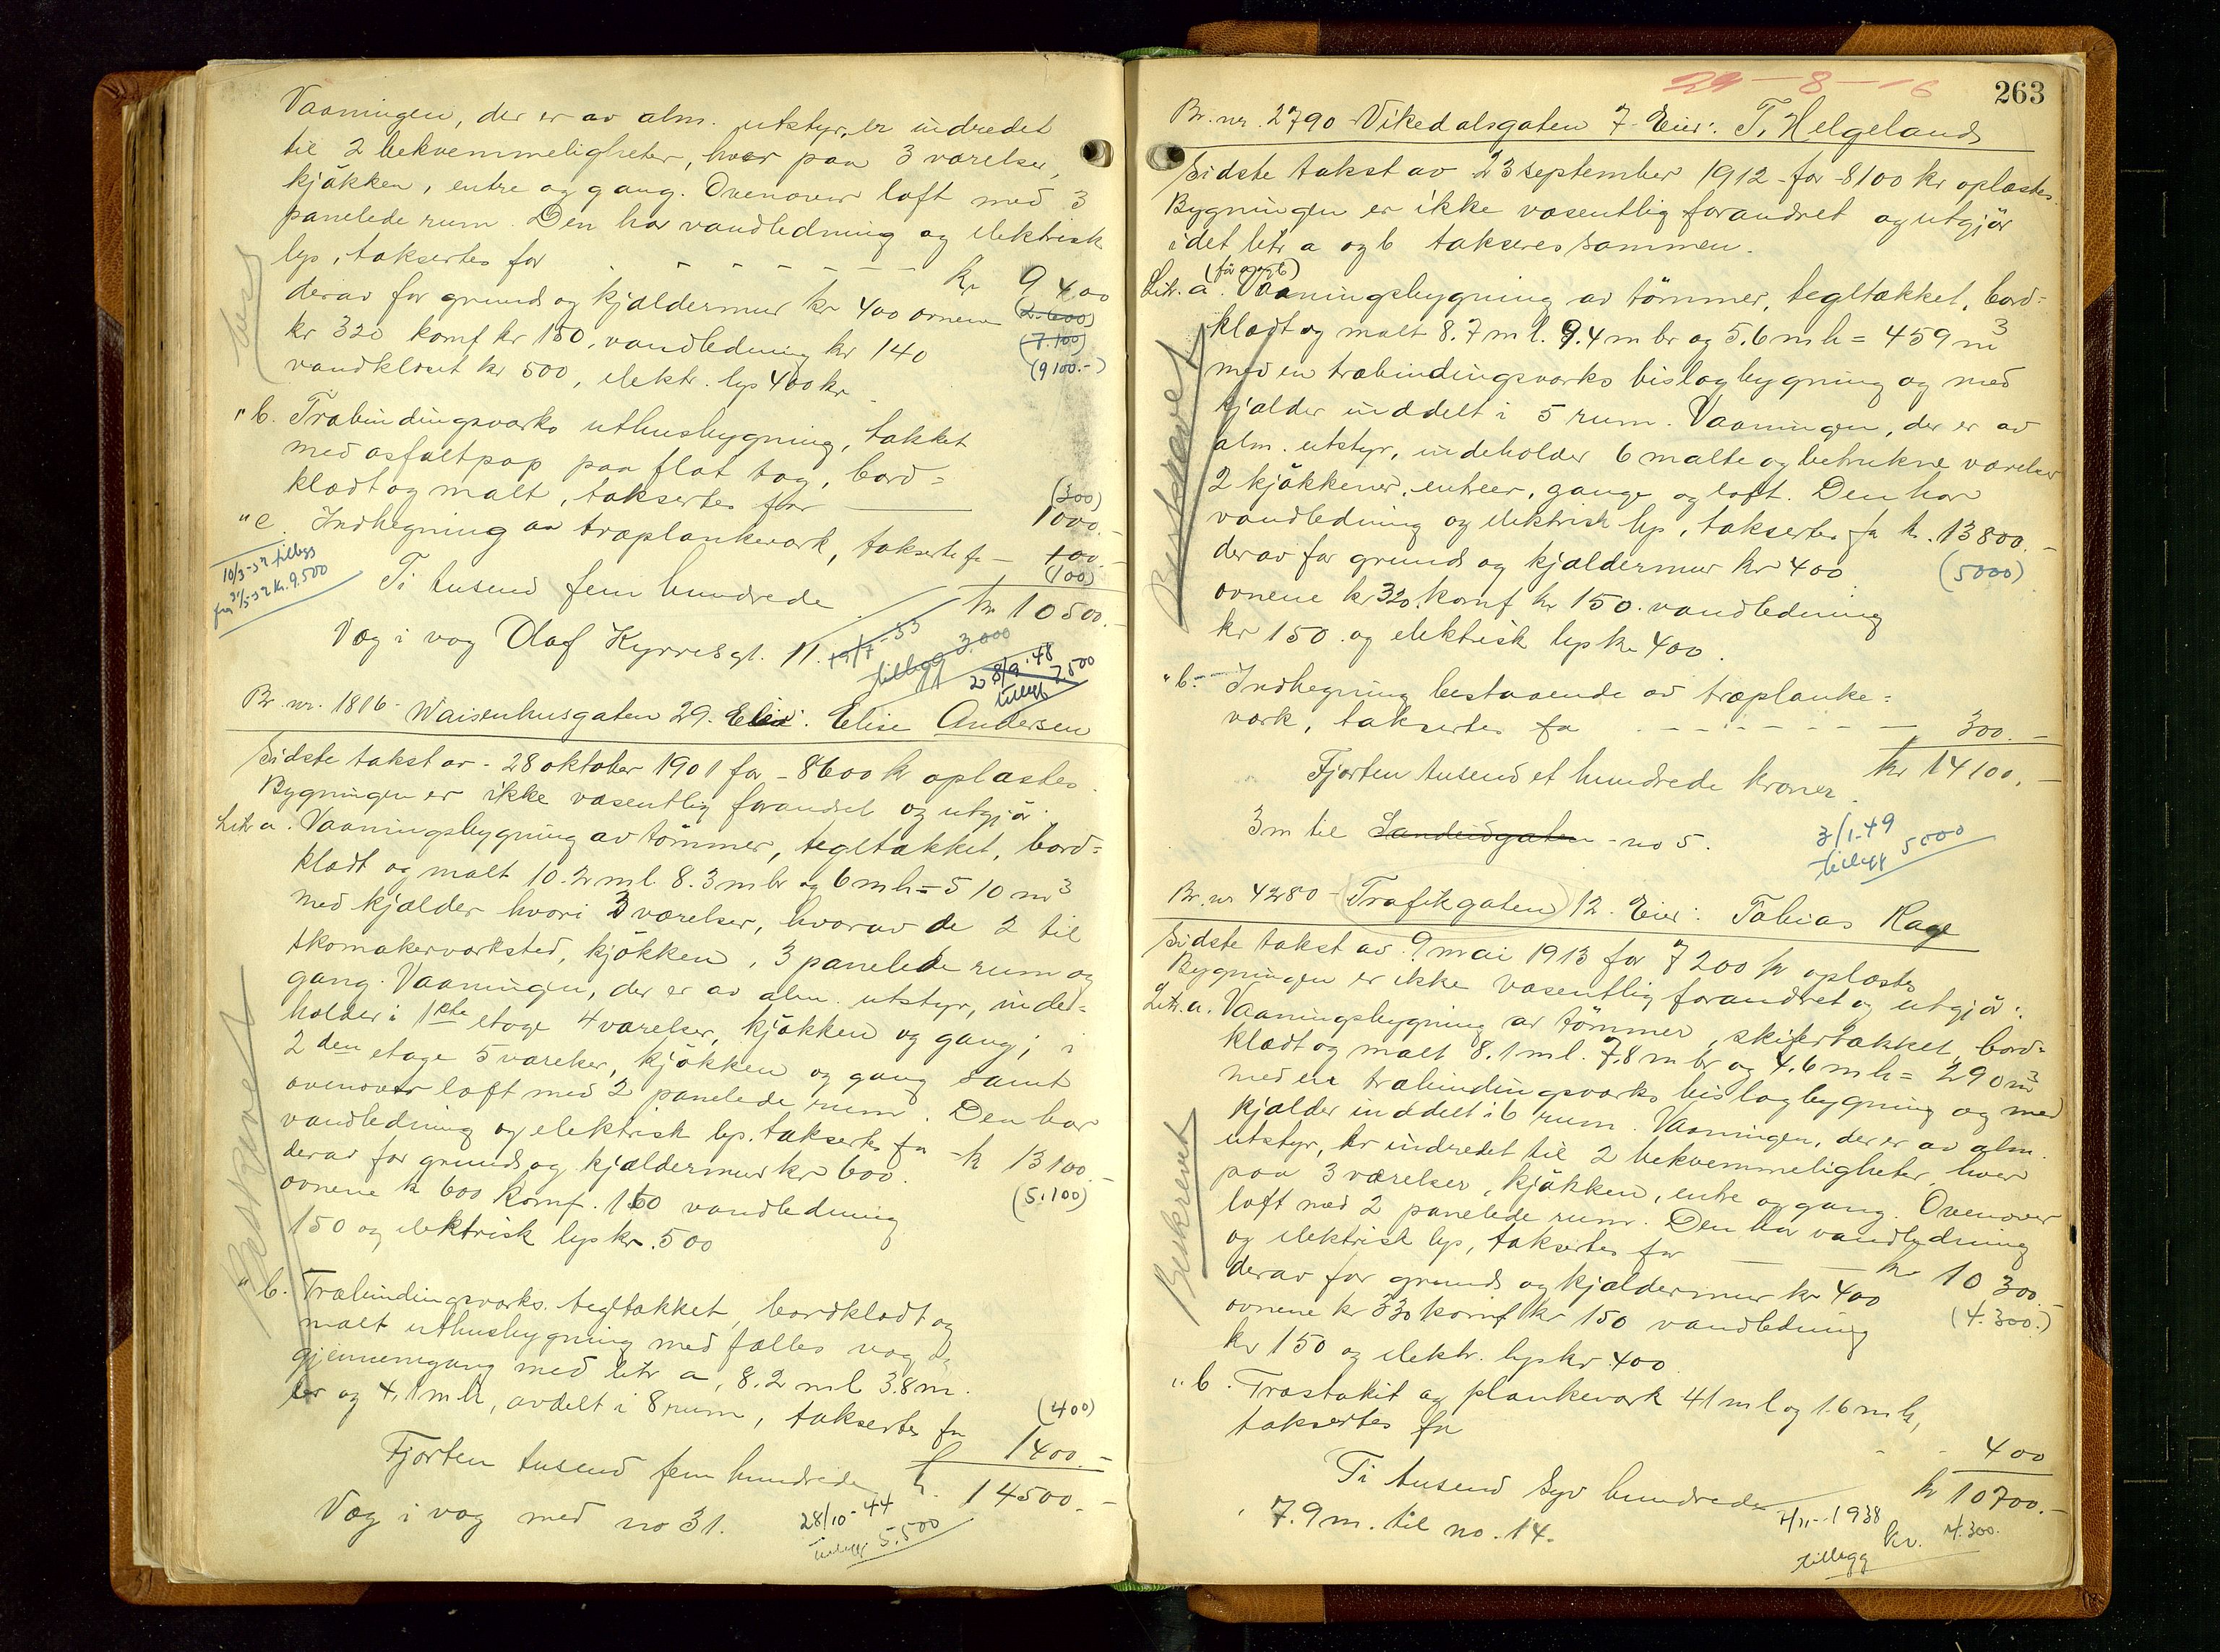 Vaaningen, der er av alm. utstyr, er indredet
til 2 bekvemmeligheter, hver paa 3 værelser,
kjøkken, entre og gang. Ovenover loft med 3
panelede rum. Den har vandledning og elektrisk
lys, taksertes for - - - - - - kr 9400
derav for grund og kjældermur kr 400 ovnene (2.600)
kr 320 komf kr 150, vandledning kr 140 (7.100)
vandklosset kr 500, elektr. lys 400 kr. (9100.-)
" b. Træbindingsværks uthusbygning, tækket
med asfaltpap paa flat tag, bord=
klædt og malt, taksertes for (300) 1000.-
" c. Indhegning av træplankeværk, taksertes for - 100.-
(100)
10/3-52 tillegg
fra 31/5-52 kr. 9.500
Ti tusend fem hundrede kr 10500.-
Væg i væg Olaf Kyrresgt. 11.
19/7-53
tillegg 3.000
28/9-48
tillegg 7500
Br. nr. 1816 - Waisenhusgaten 29. Eier: Elise Andersen
Sidste takst av - 28 oktober 1901 for - 8600 kr oplæstes.
Bygningen er ikke væsentlig forandret og utgjør:
Litr. a. Vaaningsbygning av tømmer, tegltækket, bord=
klædt og malt 10.2 m l. 8.3 m br og 6 m h = 510 m³
med kjælder hvori 3 værelser, hvorav de 2 til
skomakerværksted, kjøkken, 3 panelede rum og
gang. Vaaningen, der er av alm. utstyr, inde=
holder i 1ste etage 4 værelser, kjøkken og gang; i
2den etage 5 værelser, kjøkken og gang samt
ovenover loft med 2 panelede rum. Den har
vandledning og elektrisk lys. taksertes for - kr 13100.-
derav for grund og kjældermur kr 600. (5.100)
ovnene kr 600 komf. 150 vandledning
150 og elektrisk lys kr. 500
Beskrevet
" b. Træbindingsværks. tegltækket, bordklædt og
malt uthusbygning med fælles væg og
gjennemgang med litr a, 8.2 m l 3.8 m.
br og 4.1 m h, avdelt i 8 rum, taksertes for (400) 1400.-
Fjorten tusend fem hundrede kr. 14500.-
Væg i væg med no 31.
28/10-44
tillegg 5.500
29-8-16
263
Br. nr. 2790 Vikedalsgaten 7. Eier: T. Helgeland
Sidste takst av 23 september 1912 - for 8100 kr oplæstes.
Bygningen er ikke væsentlig forandret og utgjør
idet litr a og b takseres sammen.
(før a og b)
Litr. a. Vaaningsbygning av tømmer, tegltækket, bord=
klædt og malt 8.7 m l. 9.4 m br og 5.6 m h = 459 m³
med en træbindingsværks bislagbygning og med
kjælder inddelt i 5 rum. Vaaningen, der er av
alm. utstyr, indeholder 6 malte og betrukne værelser
2 kjøkkener, entreer, gange og loft. Den har
vandledning og elektrisk lys, taksertes for kr. 13800.-
derav for grund og kjældermur kr 400 (5000)
ovnene kr 320. komf kr 150. vandledning
kr 150. og elektrisk lys kr 400.
Beskrevet
" b. Indhegning bestaaende av træplanke=
værk, taksertes for - - - - - - 300.-
Fjorten tusend et hundrede kroner. kr 14100.-
3 m til Sandeidgaten - no 5.
3/1-49
tillegg 5000
Br. nr 4280 - Trafikgaten 12. Eier: Tobias Rage
Sidste takst av 9 mai 1913 for 7200 kr oplæstes
Bygningen er ikke væsentlig forandret og utgjør:
Litr. a. Vaaningsbygning av tømmer, skifertækket, bord=
klædt og malt 8.1 m l. 7.8 m br og 4.6 m h = 290 m³
med en træbindingsværks bislagbygning og med
kjælder inddelt i 6 rum. Vaaningen, der er av alm.
utstyr, er indredet til 2 bekvemmeligheter, hver
paa 3 værelser, kjøkken, entre og gang. Ovenover
loft med 2 panelede rum. Den har vandledning
og elektrisk lys, taksertes for - - kr 10300.-
derav for grund og kjældermur kr 400 (4.300.)
ovnene kr 330 komf kr 150 vandledning
kr 150 og elektr. lys kr 400.
Beskrevet
" b. Træstakit og plankeværk 41 m l og 1.6 m h,
taksertes for - - 400
Ti tusend syv hundrede kr 10700.-
7.9 m. til no. 14.
4/11-1938
tillegg kr. 4.300.